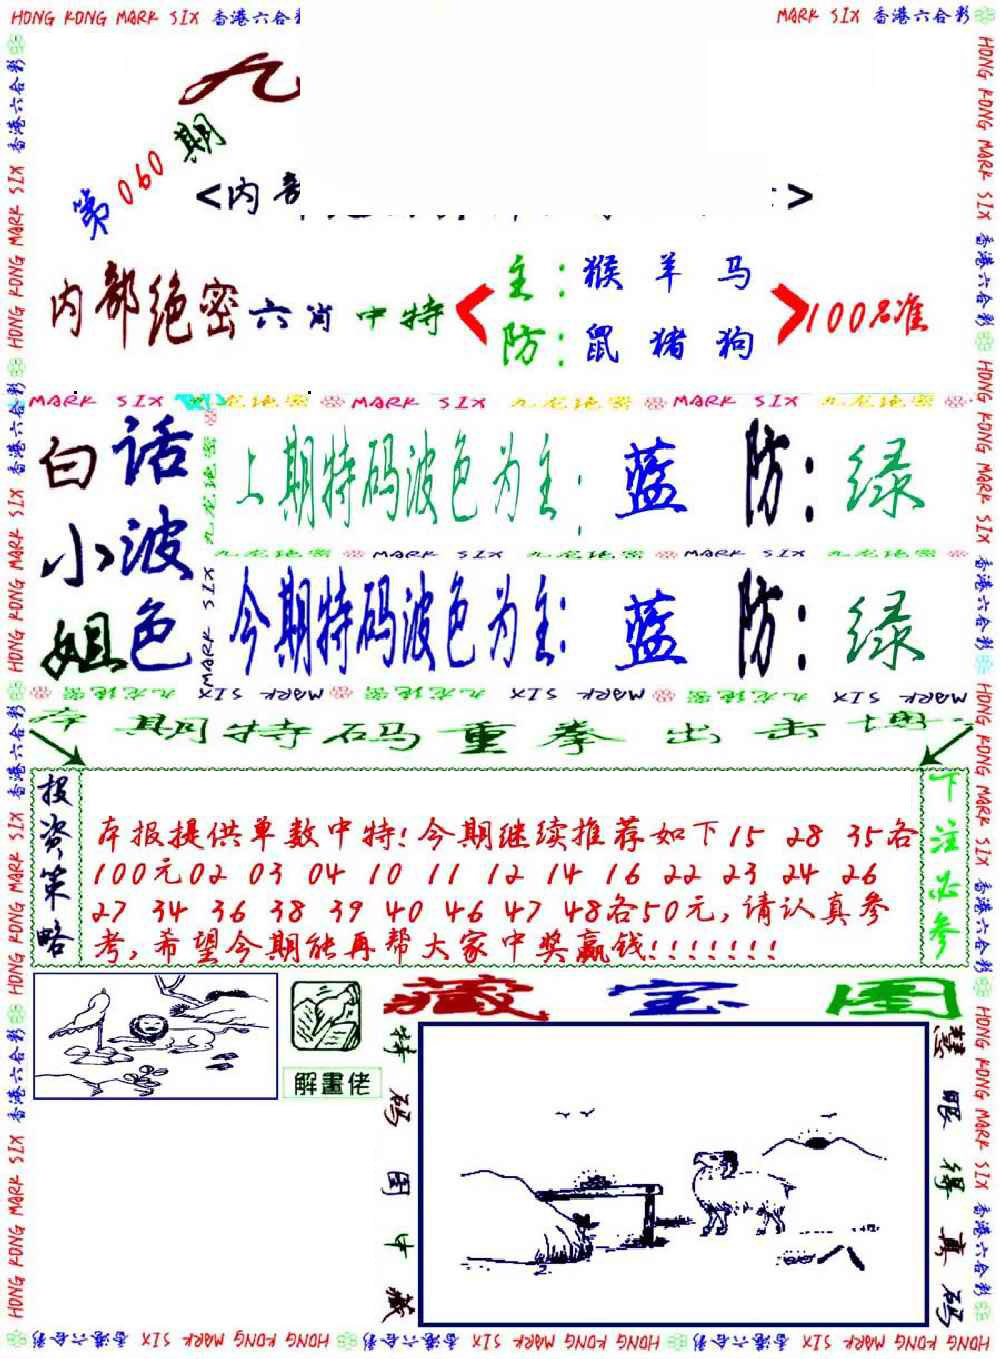 HONG KONG MARK SIX 香港六合彩
MARK SIX 香港六合彩
九
第060期
<内部
>
内部绝密六肖中特
主：猴 羊 马
防：鼠 猪 狗
100%准
MARK SIX 九龙绝密 MARK SIX 九龙绝密 MARK SIX 九龙绝密
白小姐
话波色
上期特码波色为主：蓝 防：绿
九龙绝密 MARK SIX 九龙绝密 MARK SIX 九龙绝密
今期特码波色为主：蓝 防：绿
九龙绝密 MARK SIX 九龙绝密 MARK SIX 九龙绝密 MARK SIX
本期特码重拳出击
投资策略
本报提供单数中特!今期继续推荐如下15 28 35各
100元02 03 04 10 11 12 14 16 22 23 24 26
27 34 36 38 39 40 46 47 48各50元,请认真参
考,希望今期能再帮大家中奖赢钱!!!!!!!
下注必参
解畫佬
藏宝图
特码图中藏
慧眼得真码
HONG KONG MARK SIX 香港六合彩 HONG KONG MARK SIX 香港六合彩 HONG KONG MARK SIX